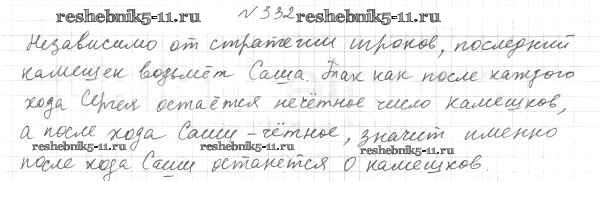 №332
reshebnik5-11.ru reshebnik5-11.ru
Независимо от стратегии игроков, последний
камешек возьмёт Саша. Так как после каждого
хода Сергея остаётся нечётное число камешков,
а после хода Саши - чётное, значит именно
reshebnik5-11.ru reshebnik5-11.ru reshebnik5-11.ru
после хода Саши останется 0 камешков.